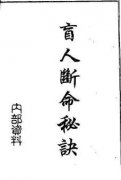 盲人斷命秘訣
內部資料